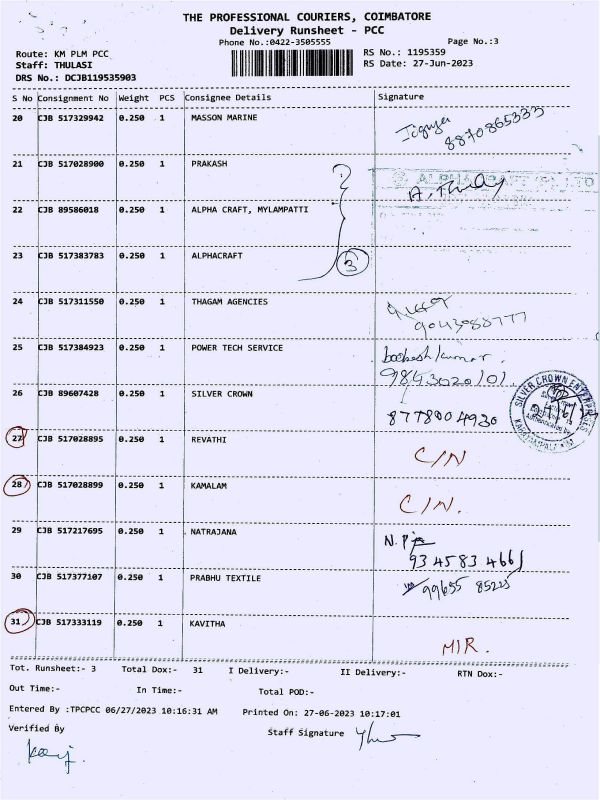 THE PROFESSIONAL COURIERS, COIMBATORE
Delivery Runsheet - PCC
Phone No.:0422-3505555 Page No.:3
Route: KM PLM PCC RS No.: 1195359
Staff: THULASI RS Date: 27-Jun-2023
DRS No.: DCJB119535903
S No Consignment No Weight PCS Consignee Details Signature
20 CJB 517329942 0.250 1 MASSON MARINE
8870865333
21 CJB 517028900 0.250 1 PRAKASH
22 CJB 89586018 0.250 1 ALPHA CRAFT, MYLAMPATTI
23 CJB 517383783 0.250 1 ALPHACRAFT
3
24 CJB 517311550 0.250 1 THAGAM AGENCIES
9043088777
25 CJB 517384923 0.250 1 POWER TECH SERVICE
9843020101
26 CJB 89607428 0.250 1 SILVER CROWN
8778004930
SILVER CROWN ENTERPRISES
27 CJB 517028895 0.250 1 REVATHI
C/N
28 CJB 517028899 0.250 1 KAMALAM
C/N.
29 CJB 517217695 0.250 1 NATRAJANA
9345834661
30 CJB 517377107 0.250 1 PRABHU TEXTILE
99655 85225
31 CJB 517333119 0.250 1 KAVITHA
MIR.
Tot. Runsheet:- 3 Total Dox:- 31 I Delivery:- II Delivery:- RTN Dox:-
Out Time:- In Time:- Total POD:-
Entered By :TPCPCC 06/27/2023 10:16:31 AM Printed On: 27-06-2023 10:17:01
Verified By Staff Signature